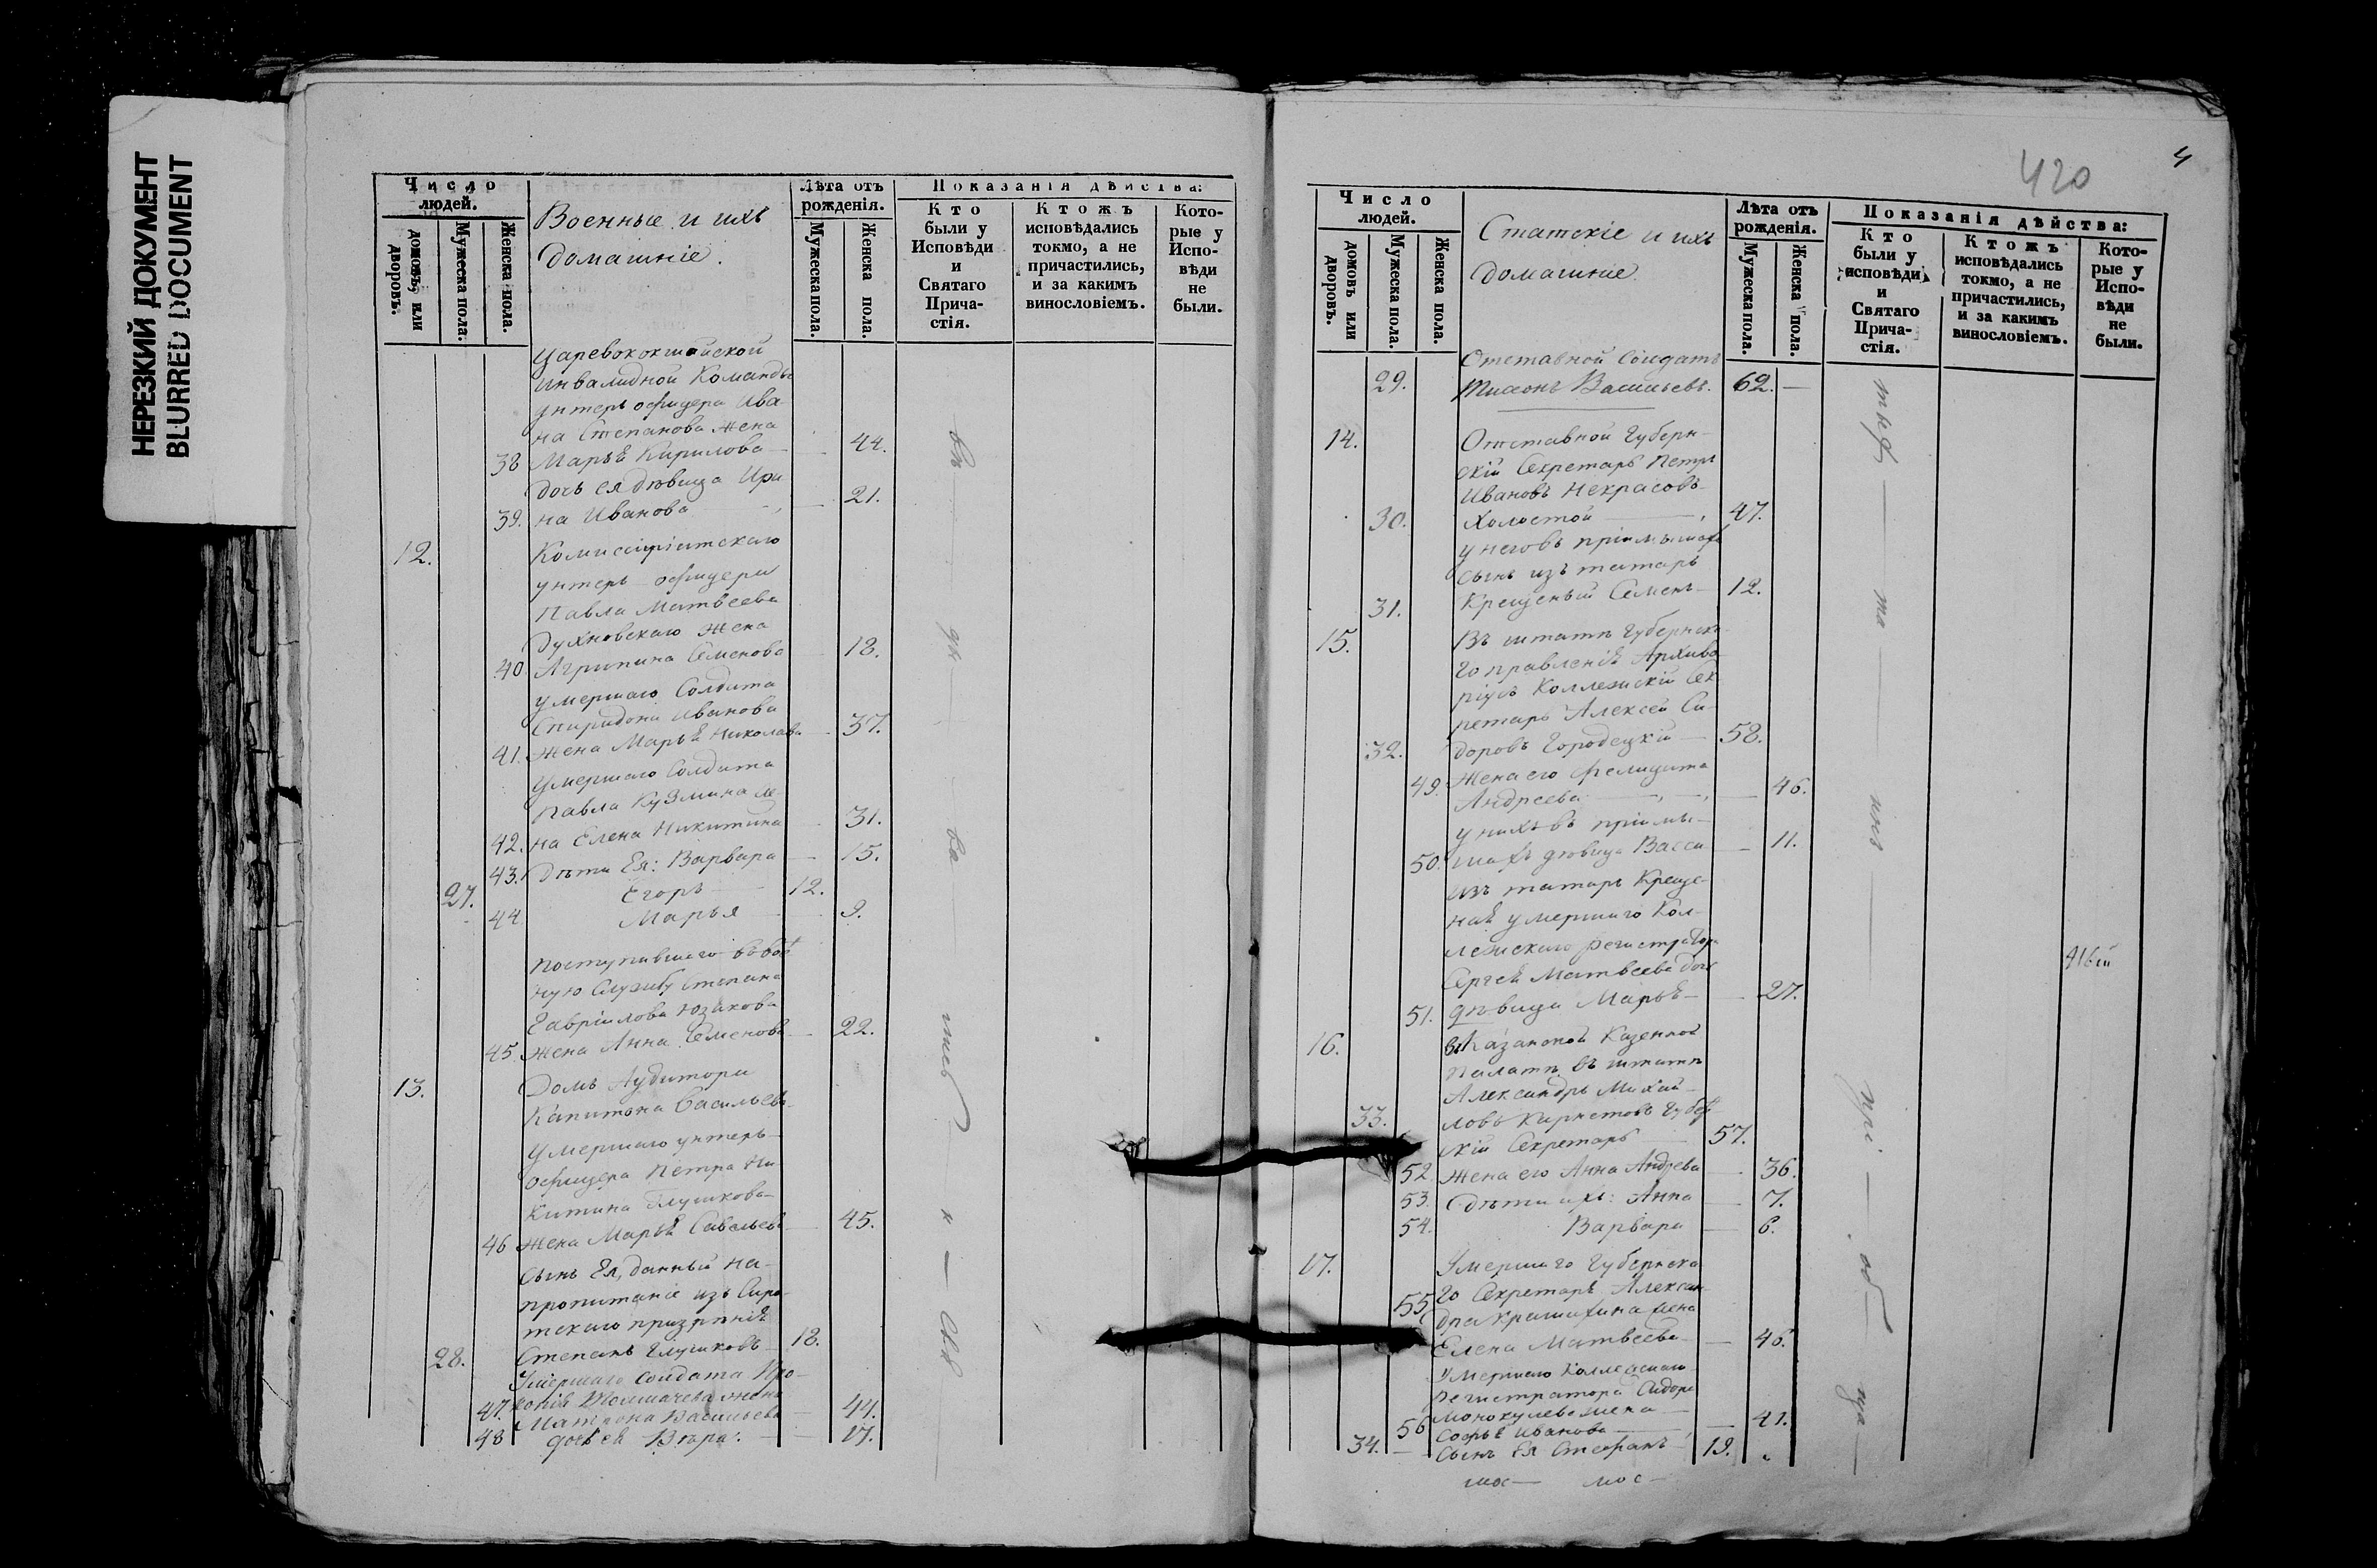 НЕРЕЗКИЙ ДОКУМЕНТ
BLURRED DOCUMENT
Число людей.
домовъ, или дворовъ.
Мужеска пола.
Женска пола.
Военные и ихъ
домашніе.
Лѣта отъ рожденія.
Мужеска пола.
Женска пола.
Показанія дѣйства:
Кто были у Исповѣди и Святаго Прича-стія.
Ктожъ исповѣдались токмо, а не причастились, и за какимъ винословіемъ.
Кото-рые у Испо-вѣди не были.
Царевококшайской
инвалидной Команды
унтеръ офицера Ива
на Степанова жена
38 Марья Кирилова — 44.
дочь ея дѣвица Ири
39. на Иванова — 21.
12. Комисаріатскаго
унтеръ-офицера
Павла Матвеева
Духновскаго жена
40 Агрипина Семенова 18.
умершаго Солдата
Спиридона Иванова
41. жена Марья Николаева 37.
умершаго Солдата
Павла Кузмина же
42. на Елена Никитина 31.
43. Дѣти Ея: Варвара — 15.
27. Егоръ — 12.
44 Марья 9.
поступившаго въ воен
ную службу Степана
Гавріилова Юзикова
45. жена Анна Семенова 22.
13. Домъ Аудитора
Капитона Васильева
умершаго унтеръ-
офицера Петра Ни
китина Глушкова
46 жена Марья Савельева 45.
сынъ Ея, данный на
пропитаніе изъ Сиро
тскаго призрѣнія
28. Степанъ Глушковъ 18.
Умершаго солдата Про
47. копія Толмачева жена
Матрона Васильева — 44.
48 дочь ея Вѣра. — 17.
420
4
Число людей.
домовъ или дворовъ.
Мужеска пола.
Женска пола.
Статскіе и ихъ
домашніе
Лѣта отъ рожденія.
Мужеска пола.
Женска пола.
Показанія дѣйства:
Кто были у исповѣди и Святаго Прича-стія.
Ктожъ исповѣдались токмо, а не причастились, и за какимъ винословіемъ.
Кото-рые у Испо-вѣди не были.
Отставной Солдатъ
29. Тихонъ Васильевъ. 62. —
14. Отставной Губерн-
скій Секретарь Петръ
Ивановъ Некрасовъ
30. Холостой — 47.
у него въ пріимышахъ
сынъ изъ татаръ
31. Крещеный Семенъ — 12.
15. Въ штатѣ Губернска
го правленія Архива
ріусъ Коллежскій Сек
ретарь Алексей Си-
32. доровъ Городецкій — 58.
49. Жена его Фелицата
Андреева — 46.
у нихъ въ пріимы-
50. шахъ дѣвица Васса — 11.
изъ татаръ Креще-
ная умершаго Кол-
лежскаго регистратора
Сергея Матвеева дочь
51. дѣвица Марья — 27.
16. въ Казанской Казенной
Палатѣ въ штатѣ
Александръ Михай-
33. ловъ Губер
скій Секретарь — 57.
52 Жена его Анна Андреева — 36.
53. Дѣти ихъ: Анна — 7.
54. Варвара — 6.
17. Умершаго Губернска
го Секретаря Алексан
55 дра жена
Елена Матвеева — 46.
Умершаго Коллежскаго
Регистратора Сидора
жена
56 Софья Иванова — 41.
34. — Сынъ Ея Стефанъ — 19.